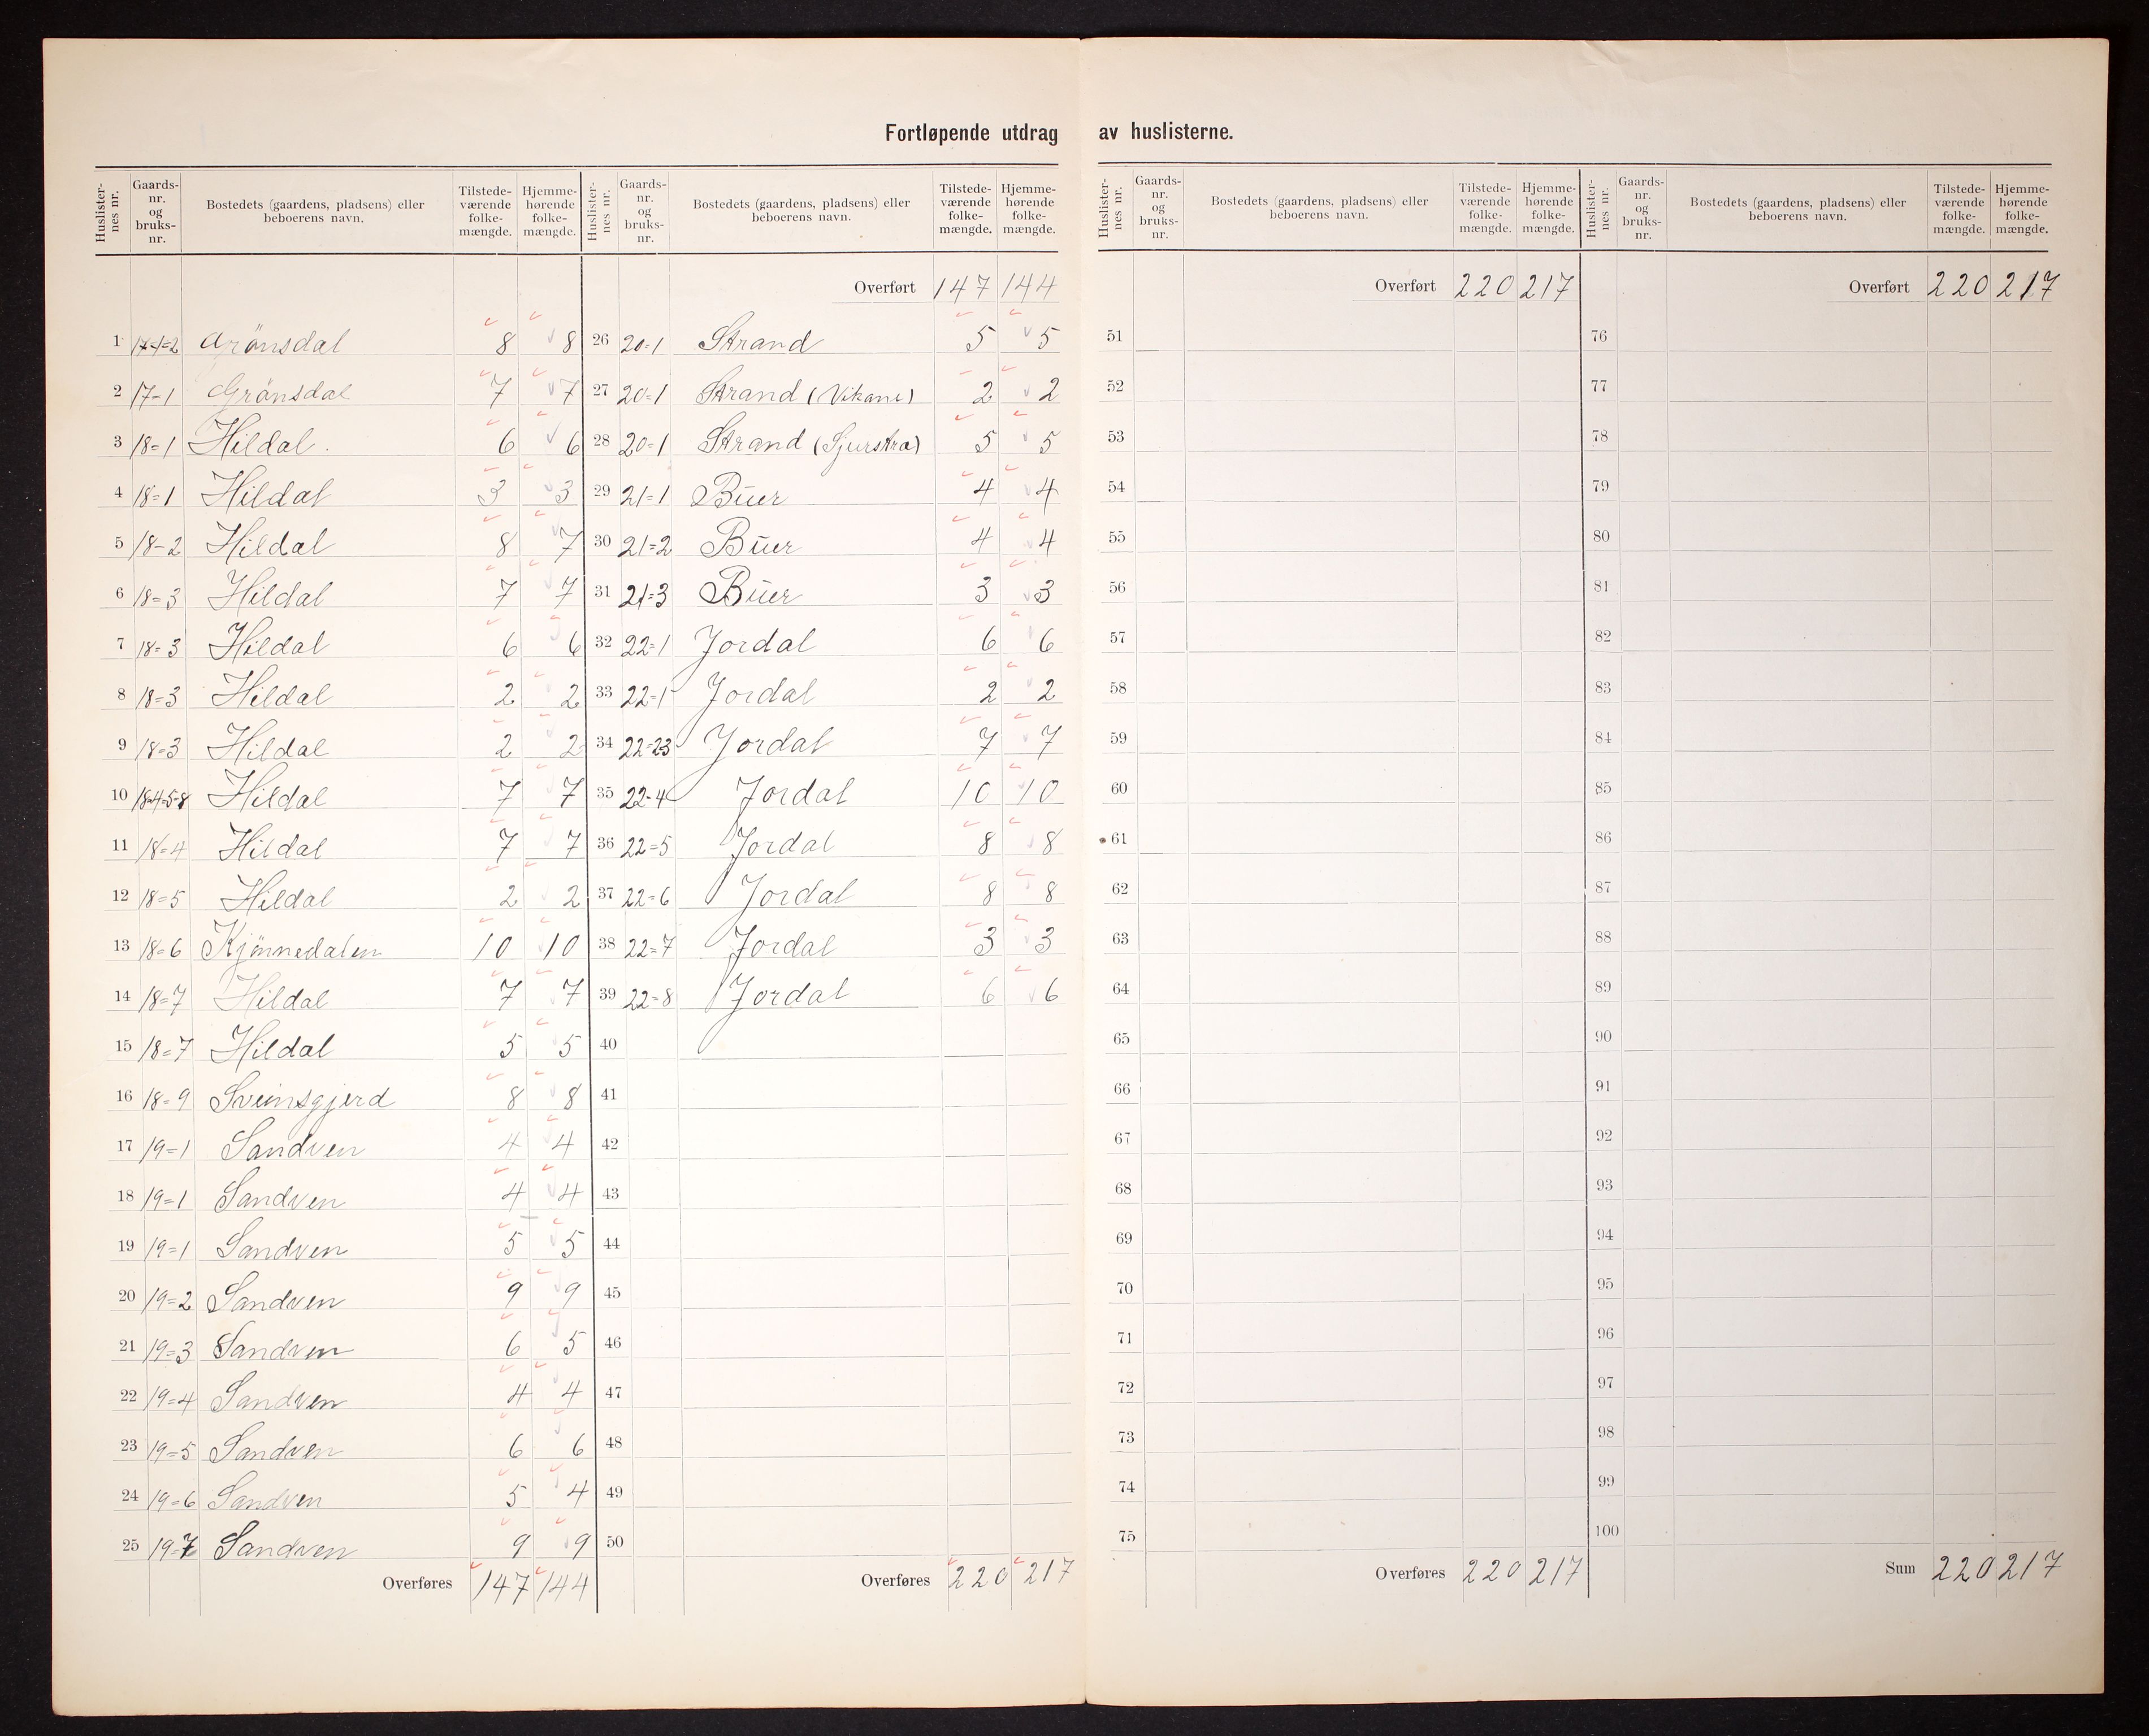 Fortløpende utdrag av huslisterne.
Huslisternes nr. Gaards-nr. og bruks-nr. Bostedets (gaardens, pladsens) eller beboerens navn. Tilstedeværende folkemængde. Hjemmehørende folkemængde.
1 17-1=2 Grönsdal 8 8
2 17-1 Grönsdal 7 7
3 18=1 Hildal. 6 6
4 18=1 Hildal 3 3
5 18-2 Hildal 8 7
6 18=3 Hildal 7 7
7 18=3 Hildal 6 6
8 18=3 Hildal 2 2
9 18=3 Hildal 2 2
10 18-4-5-8 Hildal 7 7
11 18=4 Hildal 7 7
12 18=5 Hildal 2 2
13 18=6 Kjönnedalen 10 10
14 18=7 Hildal 7 7
15 18=7 Hildal 5 5
16 18=9 Sveinsgjerd 8 8
17 19=1 Sandven 4 4
18 19=1 Sandven 4 4
19 19=1 Sandven 5 5
20 19=2 Sandven 9 9
21 19=3 Sandven 6 5
22 19=4 Sandven 4 4
23 19=5 Sandven 6 6
24 19=6 Sandven 5 4
25 19=7 Sandven 9 9
Overføres 147 144
Huslisternes nr. Gaards-nr. og bruks-nr. Bostedets (gaardens, pladsens) eller beboerens navn. Tilstedeværende folkemængde. Hjemmehørende folkemængde.
Overført 147 144
26 20=1 Strand 5 5
27 20=1 Strand (Vikane) 2 2
28 20=1 Strand (Sjurstra) 5 5
29 21=1 Büer 4 4
30 21=2 Büer 4 4
31 21=3 Büer 3 3
32 22=1 Jordal 6 6
33 22=1 Jordal 2 2
34 22=23 Jordal 7 7
35 22-4 Jordal 10 10
36 22=5 Jordal 8 8
37 22=6 Jordal 8 8
38 22=7 Jordal 3 3
39 22=8 Jordal 6 6
40
41
42
43
44
45
46
47
48
49
50
Overføres 220 217
Huslisternes nr. Gaards-nr. og bruks-nr. Bostedets (gaardens, pladsens) eller beboerens navn. Tilstedeværende folkemængde. Hjemmehørende folkemængde.
Overført 220 217
51
52
53
54
55
56
57
58
59
60
61
62
63
64
65
66
67
68
69
70
71
72
73
74
75
Overføres 220 217
Huslisternes nr. Gaards-nr. og bruks-nr. Bostedets (gaardens, pladsens) eller beboerens navn. Tilstedeværende folkemængde. Hjemmehørende folkemængde.
Overført 220 217
76
77
78
79
80
81
82
83
84
85
86
87
88
89
90
91
92
93
94
95
96
97
98
99
100
Sum 220 217